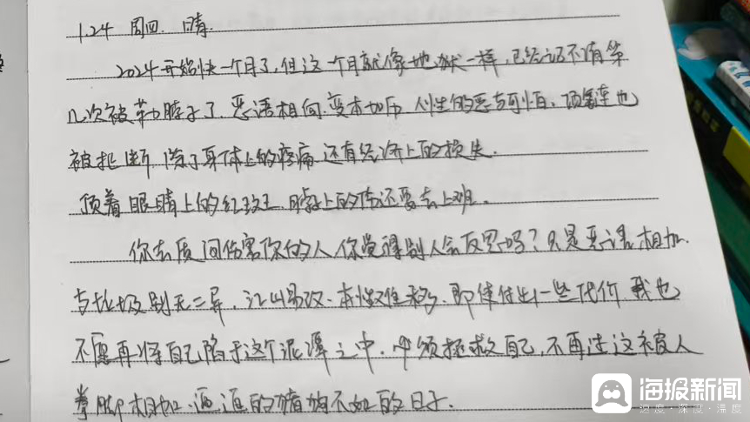 1.24 周四. 晴.
2024开始快一个月了,但这一个月就像地狱一样,已经记不清第
几次被勒脖子了.恶语相向.变本加厉 人性的恶与可怕、项链也
被扯断 除了身体上的疼痛 还有经济上的损失.
顶着眼睛上的红斑 脖上的伤还要去上班.
你去质问伤害你的人你觉得别人会反思吗?只是恶语相加.
与垃圾别无二异.江山易改.本性难移.即使付出一些代价 我也
不愿再将自己陷于这个泥潭之中.必须拯救自己,不再过这被人
拳脚相加.逼逼的猪狗不如的日子.
海报新闻
温度·深度·速度